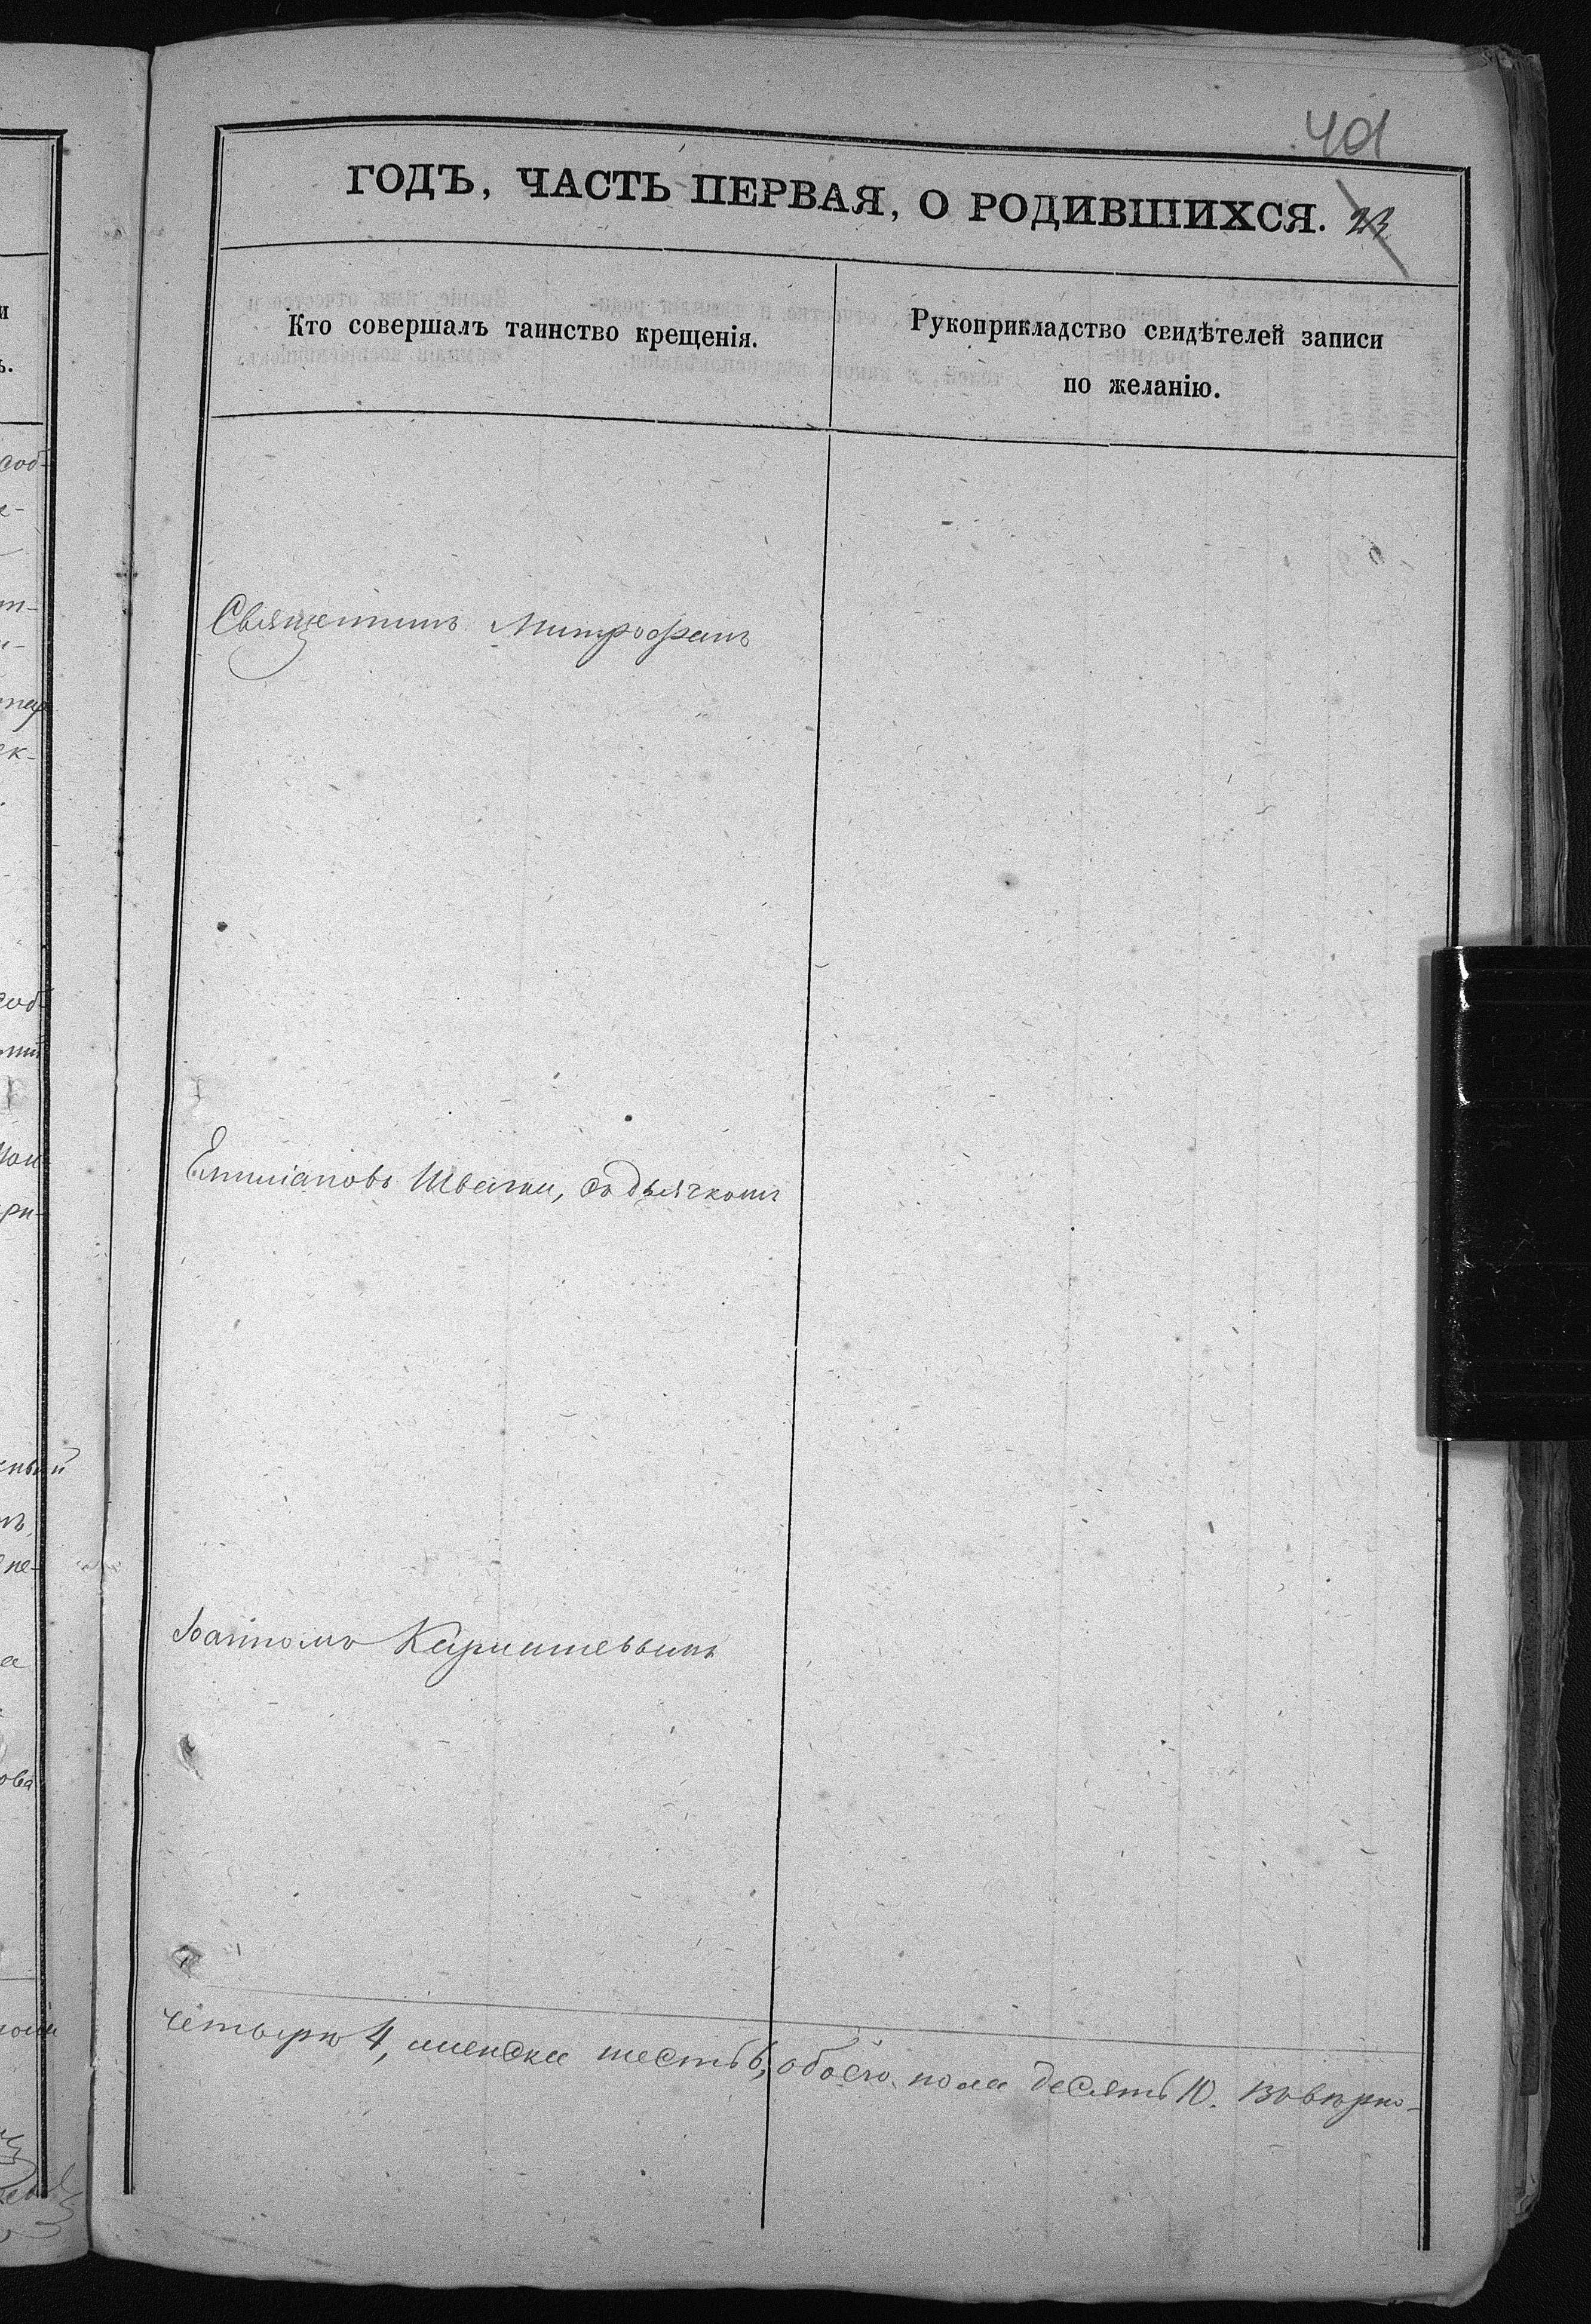 401
ГОДЪ, ЧАСТЬ ПЕРВАЯ, О РОДИВШИХСЯ. 23
Кто совершалъ таинство крещенія.
Рукоприкладство свидѣтелей записи
по желанію.
Священникъ Митрофанъ
Емиліановъ Швачки, съ дьячкомъ
Іоанномъ
четыре 4, женска шесть 6, обоего пола десять 10. Въ вѣрно-